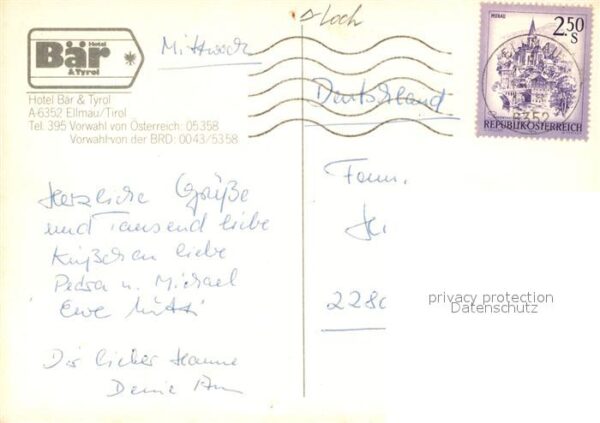 Loch
Mittwoch
Hotel
Bär
& Tyrol
Hotel Bär & Tyrol
A-6352 Ellmau/Tirol
Tel. 395 Vorwahl von Österreich: 05358
Vorwahl von der BRD: 0043/5358
MURAU
2.50
S
ELLMAU
6352
REPUBLIK ÖSTERREICH
Deutschland
Herzliche Grüße
und Tausend liebe
Küßchen liebe
Petra u. Michael
Eure Mutti
Dir lieber Hanne
Deine
Fam.
228
privacy protection
Datenschutz